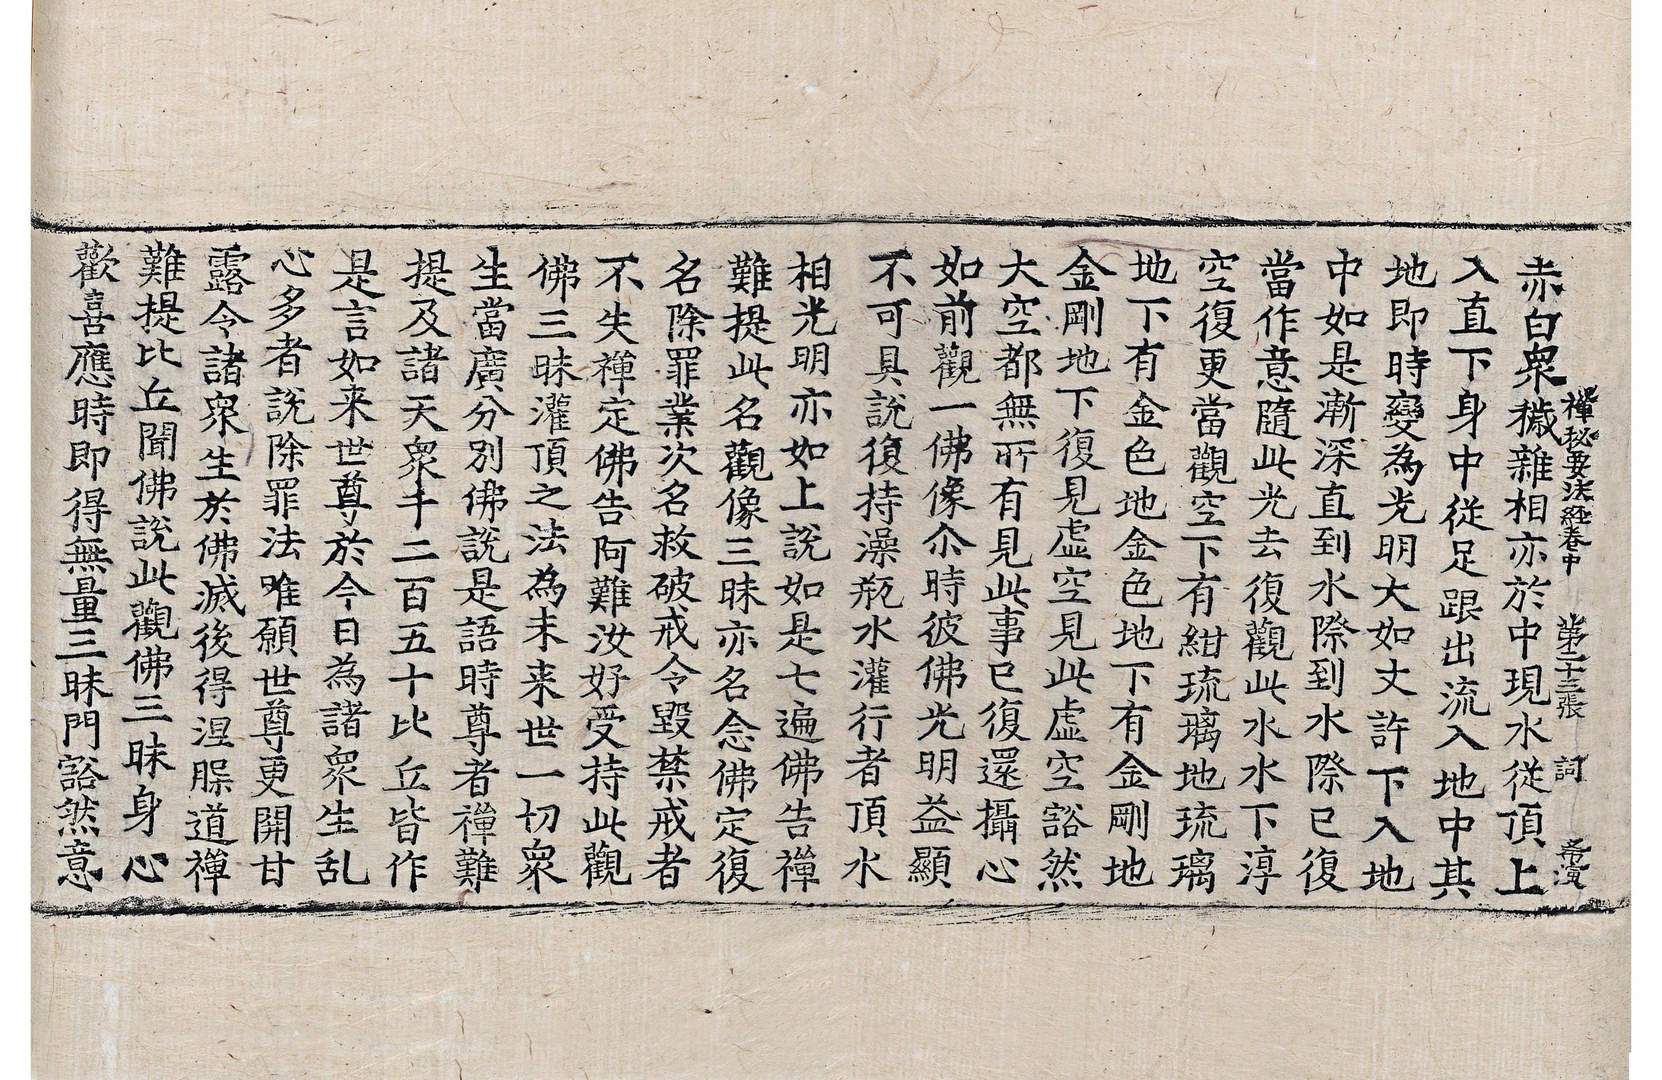 禪秘要法経卷中 第二十三張 詞 希演
赤白衆穢雜相亦於中現水從頂上
入直下身中從足跟出流入地中其
地即時變為光明大如丈許下入地
中如是漸深直到水際到水際已復
當作意隨此光去復觀此水水下淳
空復更當觀空下有紺琉璃地琉璃
地下有金色地金色地下有金剛地
金剛地下復見虛空見此虛空豁然
大空都無所有見此事已復還攝心
如前觀一佛像尒時彼佛光明益顯
不可具說復持澡瓶水灌行者頂水
相光明亦如上說如是七遍佛告禪
難提此名觀像三昧亦名念佛定復
名除罪業次名救破戒令毀禁戒者
不失禪定佛告阿難汝好受持此觀
佛三昧灌頂之法為未来世一切衆
生當廣分別佛說是語時尊者禪難
提及諸天衆千二百五十比丘皆作
是言如来世尊於今日為諸衆生乱
心多者說除罪法唯願世尊更開甘
露令諸衆生於佛滅後得涅槃道禪
難提比丘聞佛說此觀佛三昧身心
歡喜應時即得無量三昧門豁然意